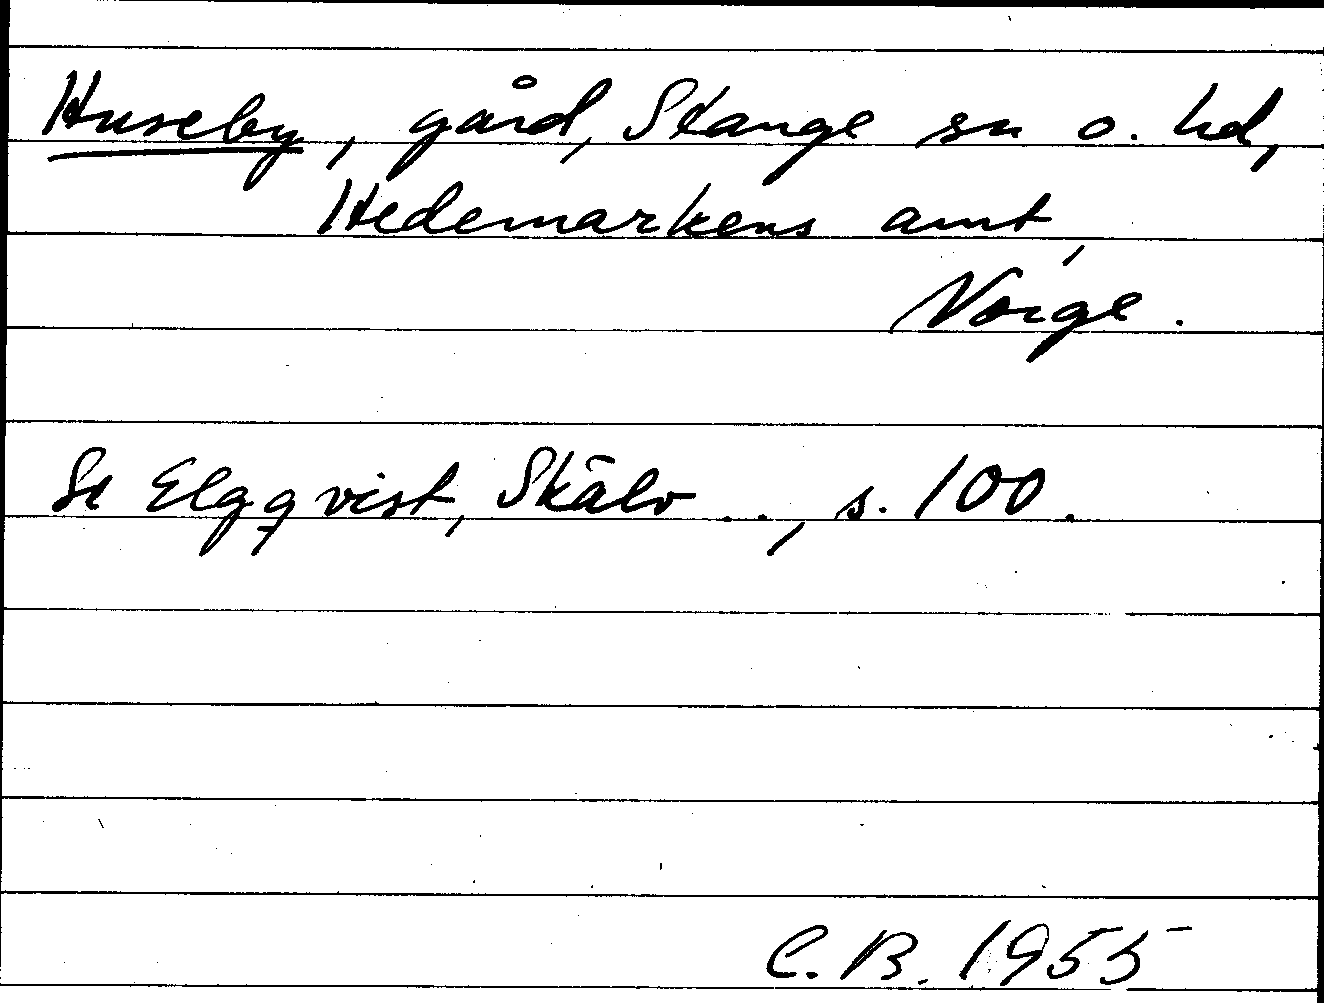 Huseby, gård, Stange sn o. hd,
Hedemarkens amt,
Norge.
Se Elgqvist, Skälv . . , s. 100.
C. B. 1955